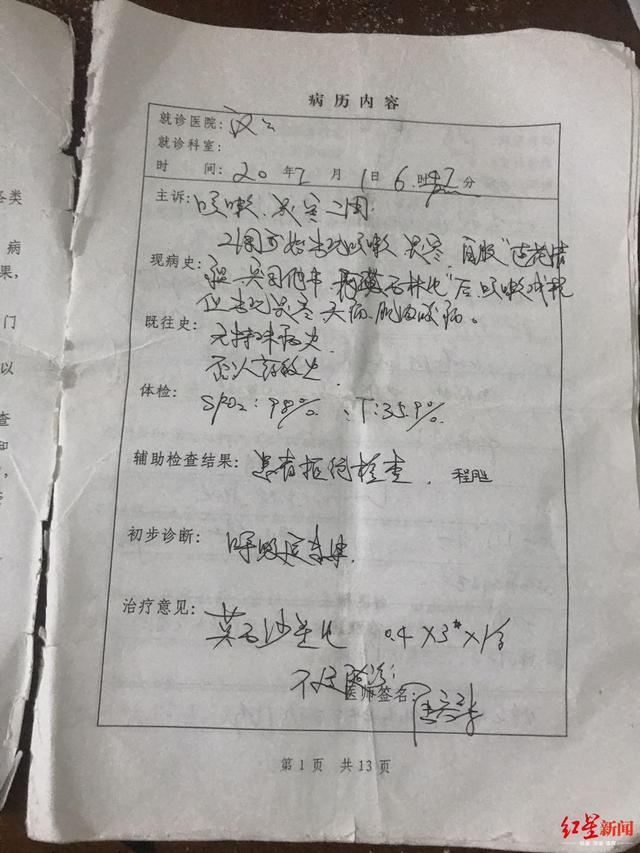 各类
病
果,
门
以
查
知
病历内容
就诊医院: 汉口
就诊科室:
时 间: 20 年 2 月 1 日 6 时 42 分
主诉: 咳嗽、畏寒二周.
2周前开始出现咳嗽、畏寒, 自服"连花清
现病史: 后, 咳嗽减轻
但出现畏寒、头痛、肌肉酸痛。
既往史: 无特殊病史
否认药敏史.
体检: SPO₂: 98%. T: 35.9%.
辅助检查结果: 患者拒绝检查. 程胜
初步诊断: 呼吸道
治疗意见: 莫西沙星 0.4×3#×1盒
不适随诊;
医师签名:
第1页 共13页
红星新闻